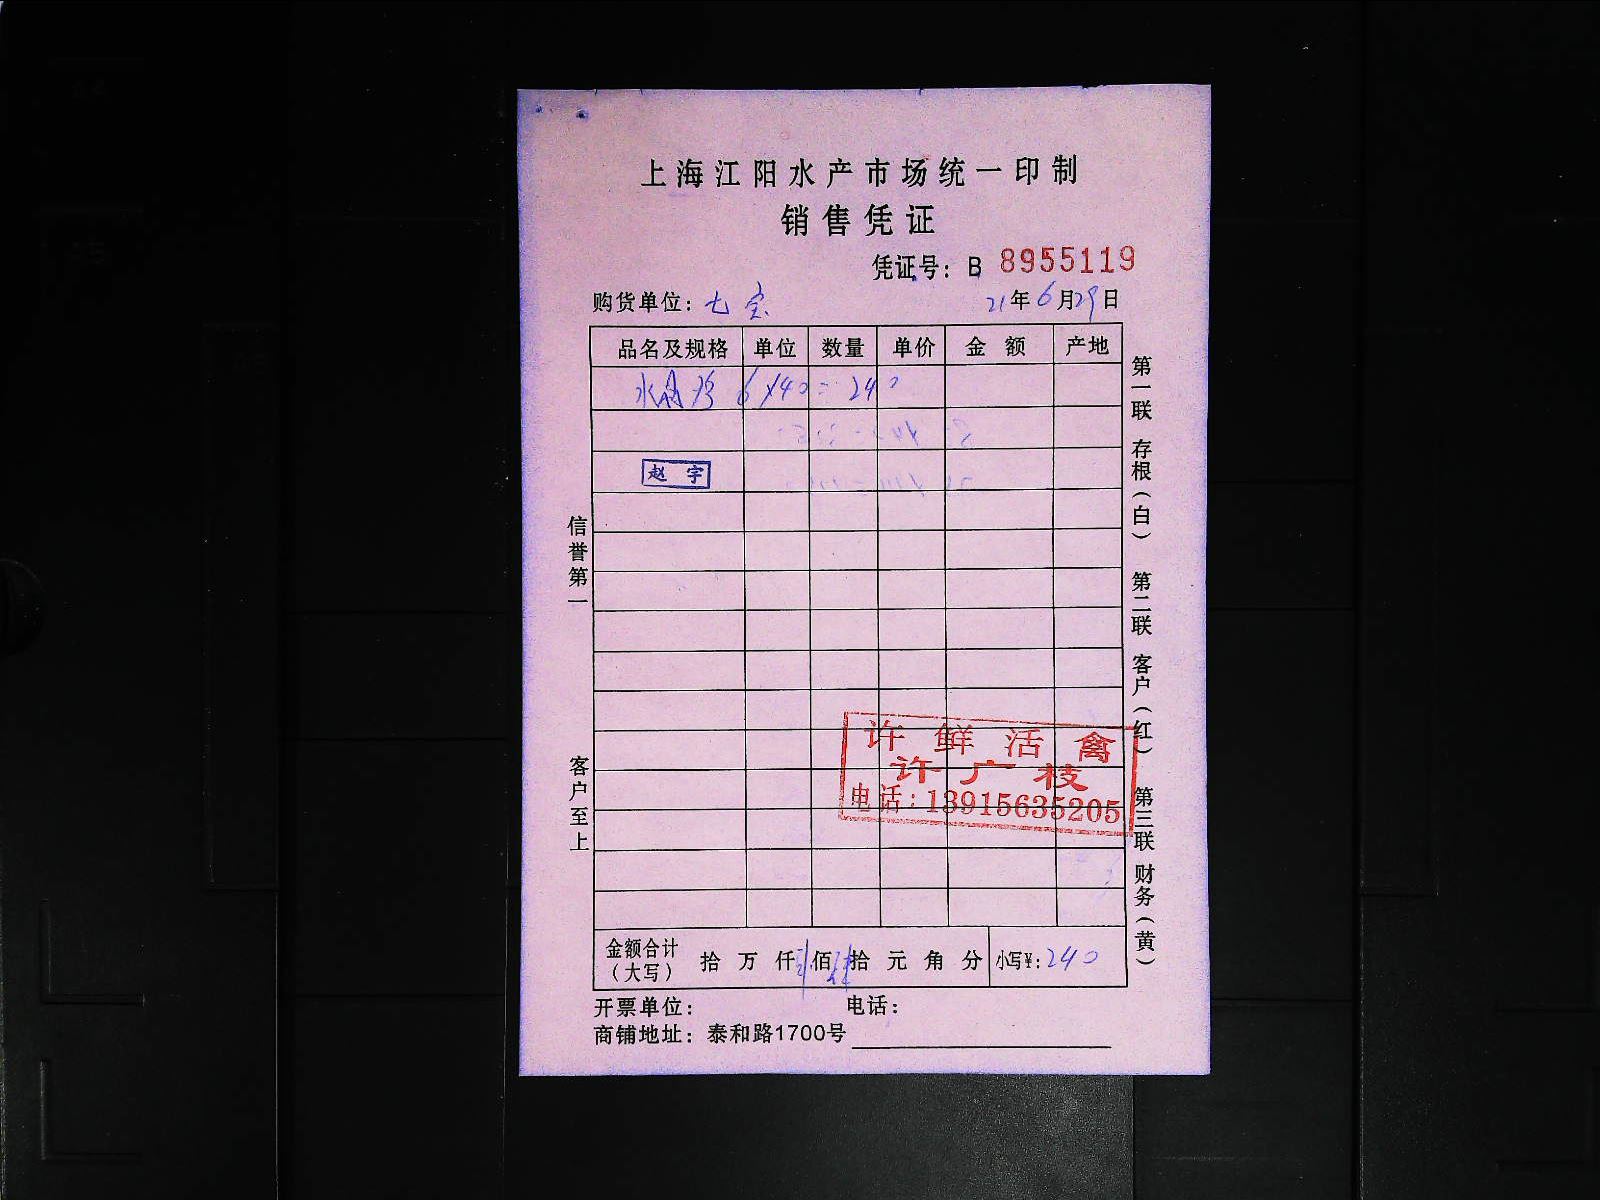 上海江阳水产市场统一印制
销售凭证
凭证号：B 8955119
购货单位：七宝 21年6月29日
品名及规格 单位 数量 单价 金额 产地
水 6×40=240
赵宇
信誉第一
客户至上
第一联 存根（白） 第二联 客户（红） 第三联 财务（黄）
许鲜活禽
许广枝
电话：13915635205
金额合计（大写） 拾 万 仟 佰 拾 元 角 分 小写¥：240
开票单位： 电话：
商铺地址：泰和路1700号